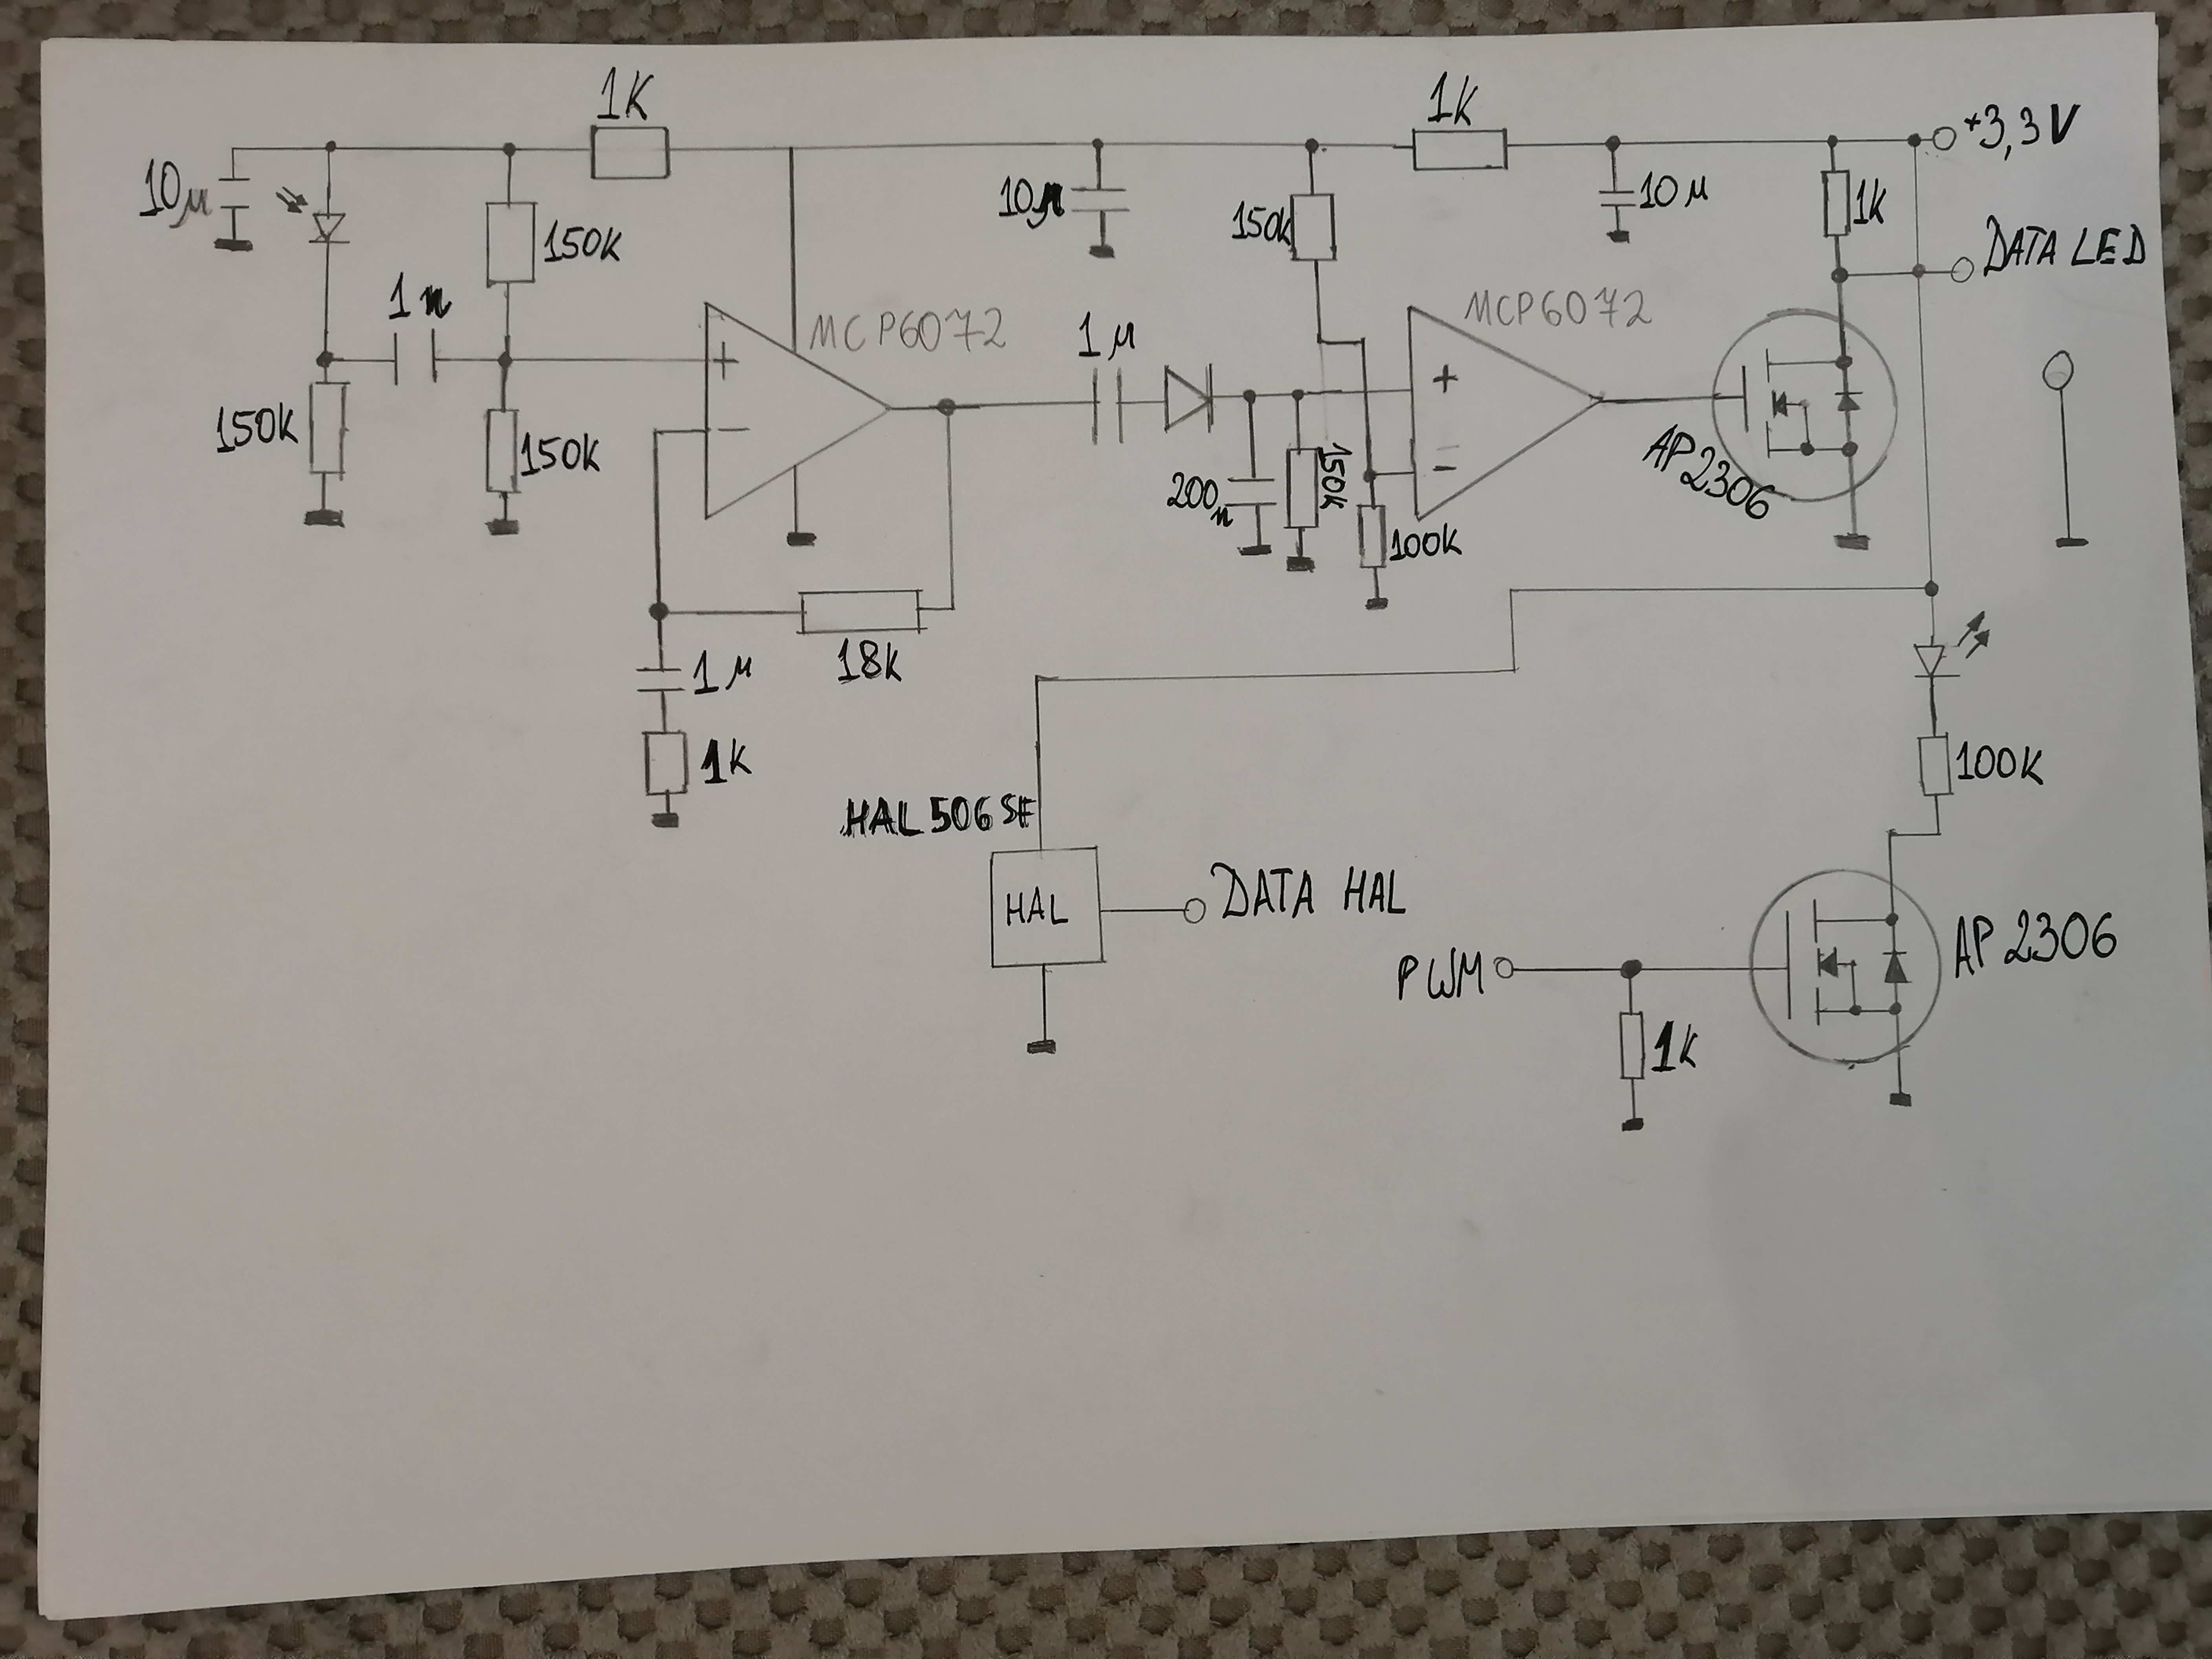 1K
1K
+3,3V
10μ
10μ
10μ
1K
150K
150K
DATA LED
1n
MCP6072
MCP6072
1μ
+
+
150K
150K
-
-
200n
150K
100K
AP2306
18K
1μ
1K
100K
HAL506SF
HAL
DATA HAL
PWM
AP2306
1K